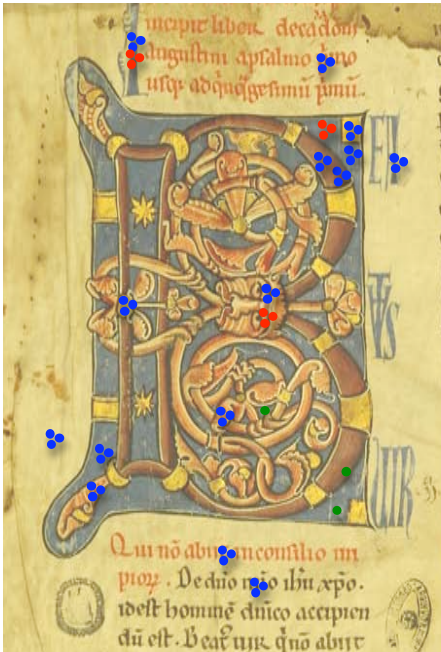 Incipit liber decadom̄
Augustini a psalmo p̄mo
usq; ad qnq̄gesimū p̄mū.
B EA
TVS
VIR
Qui nō abiit in consilio im
pioꝝ. De dn̄o nr̄o ihū xp̄o.
idest homine dn̄ico accipien
dū est. Beatꝰ uir q̄ nō abiit